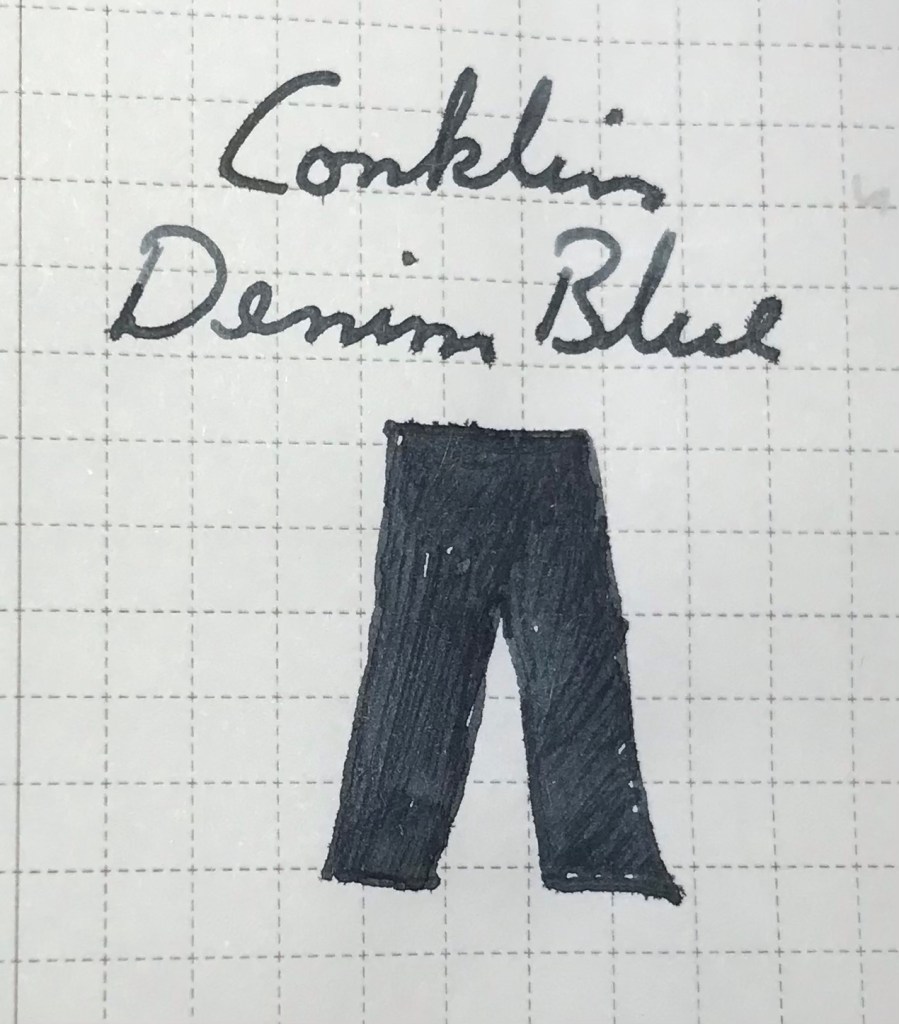 Conklin
Denim Blue